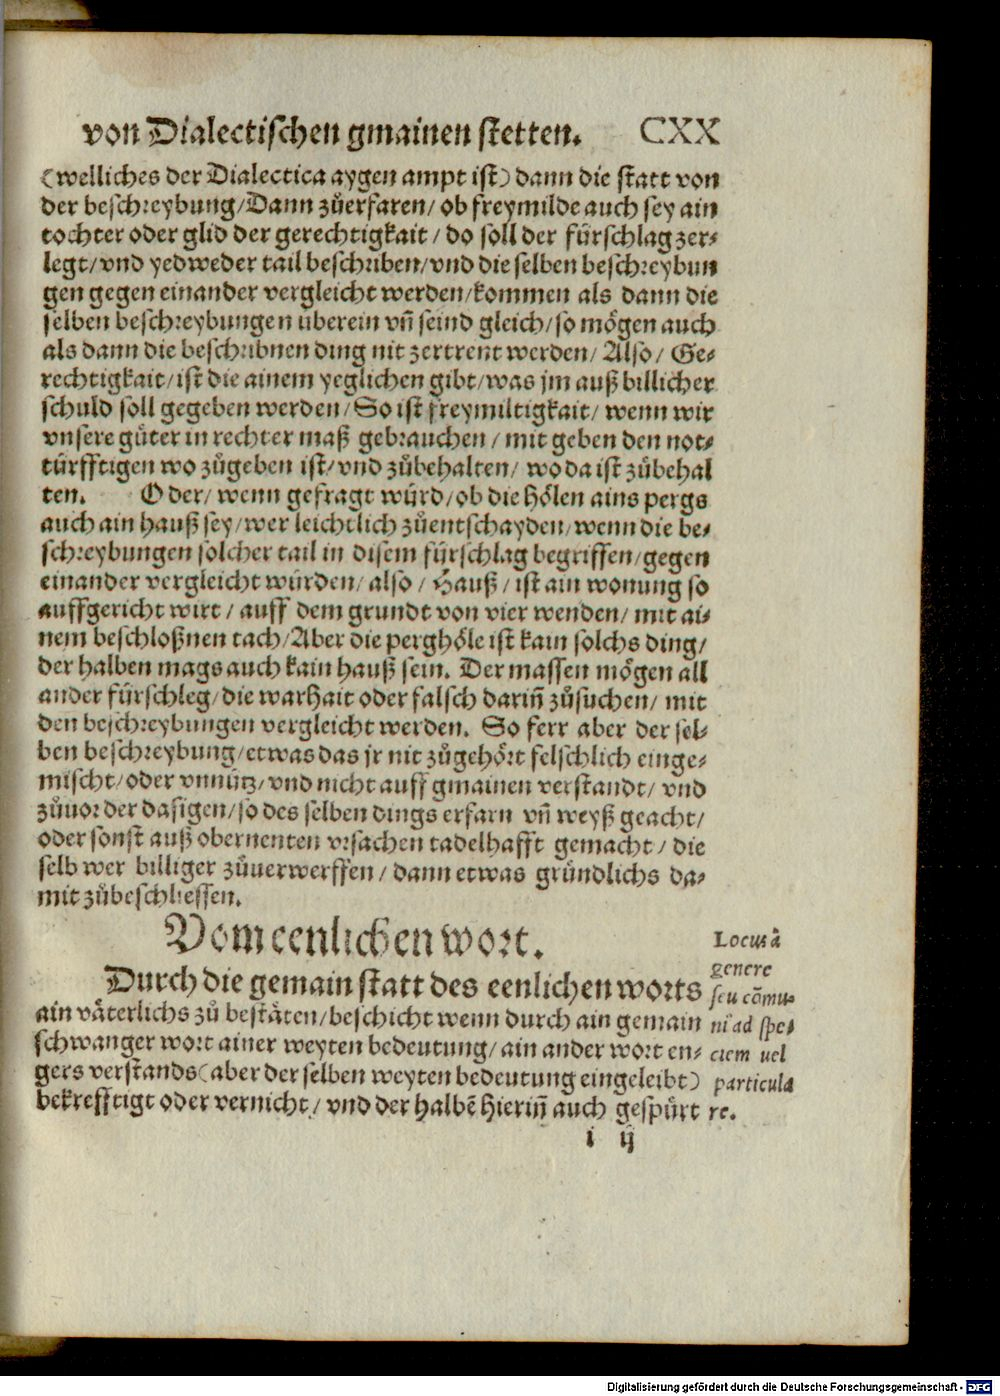 von Dialectischen gmainen stetten. CXX
(welliches der Dialectica aygen ampt ist) dann die statt von
der beschreybung/Dann zůerfaren/ ob freymilde auch sey ain
tochter oder glid der gerechtigkait/ do soll der fürschlag zer-
legt/vnd yedweder tail beschriben/vnd die selben beschreybun
gen gegen einander vergleicht werden/kommen als dann die
selben beschreybungen überein vñ seind gleich/so mögen auch
als dann die beschribnen ding nit zertrent werden/ Also/ Ge-
rechtigkait/ist die ainem yeglichen gibt/was jm auß billicher
schuld soll gegeben werden/So ist freymiltigkait/ wenn wir
vnsere güter in rechter maß gebrauchen/ mit geben den not-
türfftigen wo zůgeben ist/vnd zůbehalten/ wo da ist zůbehal
ten. Oder/ wenn gefragt würd/ob die hölen ains pergs
auch ain hauß sey/wer leichtlich zůentschayden/wenn die be-
schreybungen solcher tail in disem fürschlag begriffen/gegen
einander vergleicht würden/ also/ Hauß/ ist ain wonung so
auffgericht wirt/ auff dem grundt von vier wenden/ mit ai-
nem beschloßnen tach/Aber die perghöle ist kain solchs ding/
der halben mags auch kain hauß sein. Der massen mögen all
ander fürschleg/die warhait oder falsch dariñ zůsuchen/ mit
den beschreybungen vergleicht werden. So ferr aber der sel-
ben beschreybung/etwas das jr nit zůgehört felschlich einge-
mischt/oder vnnütz/vnd nicht auff gmainen verstandt/ vnd
zůuor der dasigen/so des selben dings erfarn vñ weyß geacht/
oder sonst auß obernenten vrsachen tadelhafft gemacht/ die
selb wer billiger zůuerwerffen/ dann etwas gründlichs da-
mit zůbeschliessen.
Vom eenlichen wort.
Durch die gemain statt des eenlichen worts
ain väterlichs zů bestäten/beschicht wenn durch ain gemain
schwanger wort ainer weyten bedeutung/ ain ander wort en-
gers verstands(aber der selben weyten bedeutung eingeleibt)
bekrefftigt oder vernicht/ vnd der halbẽ hieriñ auch gespürt
Locus à
genere
seu cõmu-
ni ad spe-
ciem uel
particula
re.
i ij
Digitalisierung gefördert durch die Deutsche Forschungsgemeinschaft - DFG